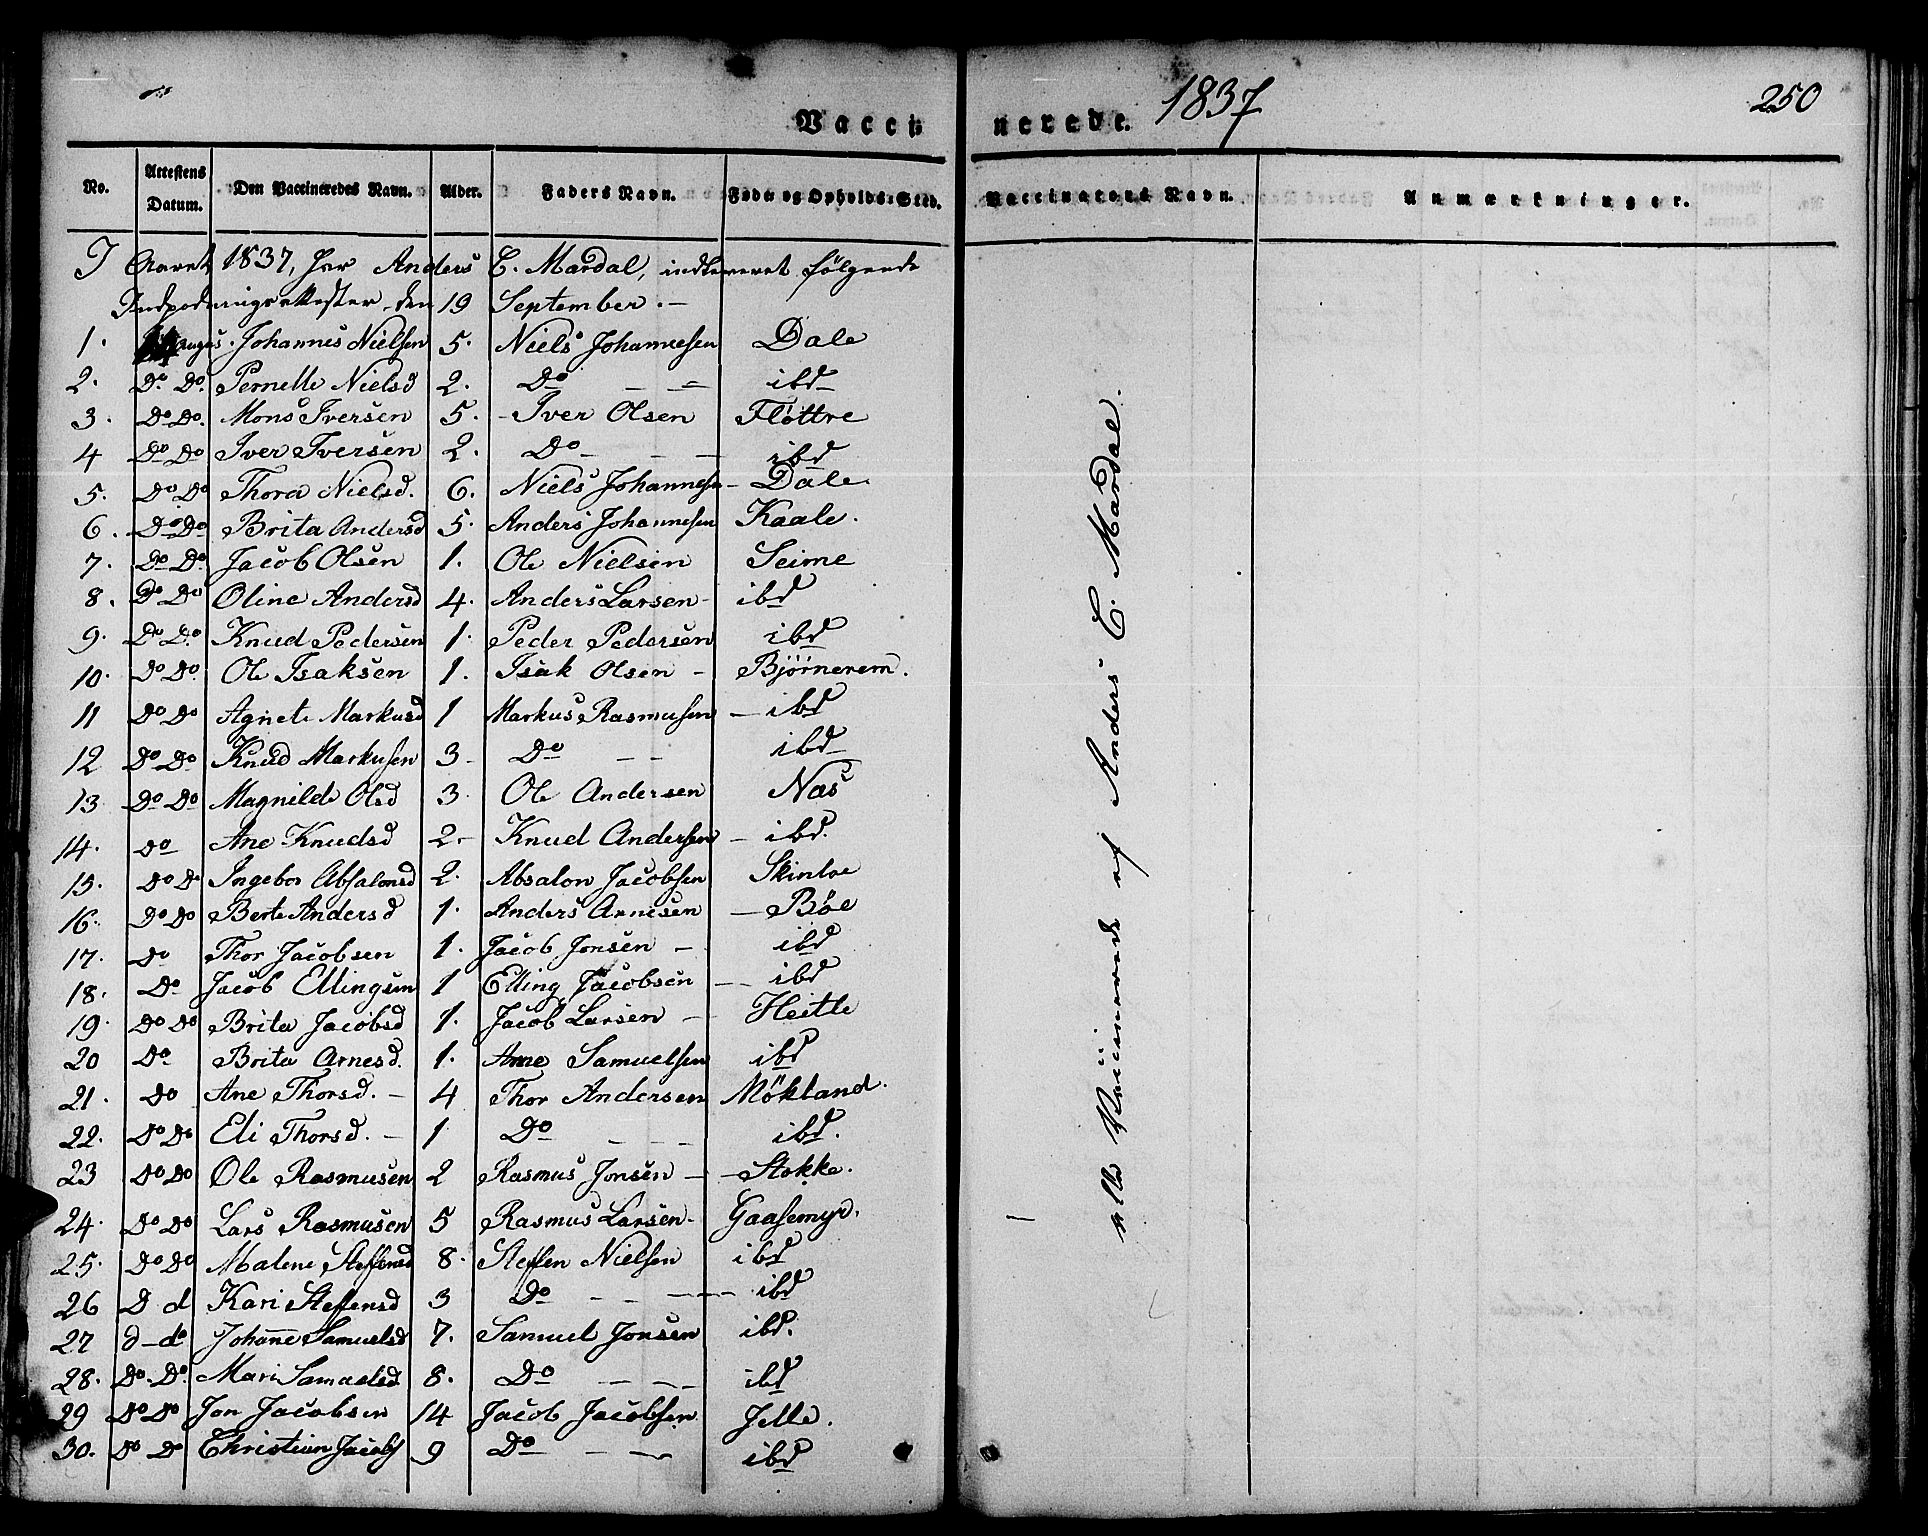 1837
250
Vacci: nerede.
No. Attestens Datum. Den Vaccineredes Navn. Alder. Faders Navn. Føde og Opholds-Sted. Vaccinatorens Navn. Anmærkninger.
I Aaret 1837, har Anders E. Mardal, indleveret følgende
Indpodningsattester den 19 September. —
1. Augus. Johannes Nielsen 5. Niels Johannesen Dale
2. Do Do. Pernelle Nielsd 2. Do — — ibd
3. Do Do. Mons Iversen 5. - Iver Olsen Fløttre
4 Do Do Iver Iversen 2. Do — — — ibd
5. Do Do Thora Nielsd. 6. Niels Johannesen — Dale
6. Do Do Brita Andersd 5. Anders Johannesen Kaale.
7. Do Do. Jacob Olsen 1. Ole Nielsen Seime
8. Do Do Oline Andersd 4. Anders Larsen - ibd
9. Do Do. Knud Pedersen 1. Peder Pedersen ibd
10. Do Do. Ole Isaksen 1. Isak Olsen - Bjørnerem.
11 Do Do Agnete Markusd 1 Markus Rasmusen — ibd
12 Do Do Knud Markusen 3 - Do — — ibd
13. Do Do Magnilde Olsd 3. Ole Andersen Næs
14. Do Ane Knudsd 2. - Knud Andersen — ibd.
15. Do Do Ingebor Absalonsd 2. Absalon Jacobsen Skinloe
16. Do Do Berte Andersd 1. Anders Arnesen — Bøe
17. Do Thor Jacobsen 1. Jacob Jonsen — ibd
18. Do Jacob Ellingsen 1 Elling Jacobsen — — ibd
19. Do Do Brita Jacobsd 1. Jacob Larsen — Heitle
20 Do Brita Arnesd. 1. Arne Samuelsen ibd
21. Do Ane Thorsd. — 4 Thor Andersen Mökland.
22. Do Do Eli Thorsd. — 1 Do — — — ibd.
23 Do Do Ole Rasmusen 2 Rasmus Jonsen — — Stokke.
24. Do Do Lars Rasmusen 5 Rasmus Larsen - Gaasemyr.
25. Do Do Malene Steffensd 8. Steffen Nielsen ibd
26 D d Kari Steffensd 3 Do — — — — ibd
27 d — do Johanne Samuelsd 7. Samuel Jonsen ibd.
28. Do. Do. Mari Samuelsd 8. Do — — — ibd
29 Do Do Jon Jacobsen 14 Jacob Jacobsen Jelle.
30. Do Do Christian Jacobs 9 Do — — ibd
alle Vaccinerede af Anders E. Mardal.